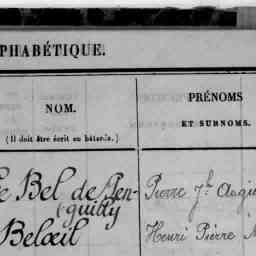 PHABÉTIQUE.
NOM.
(Il doit être écrit en bâtarde.)
PRÉNOMS
ET SURNOMS.
Le Bel de Pen-
guilly
Pierre Jh Augu
Belœil
Henri Pierre